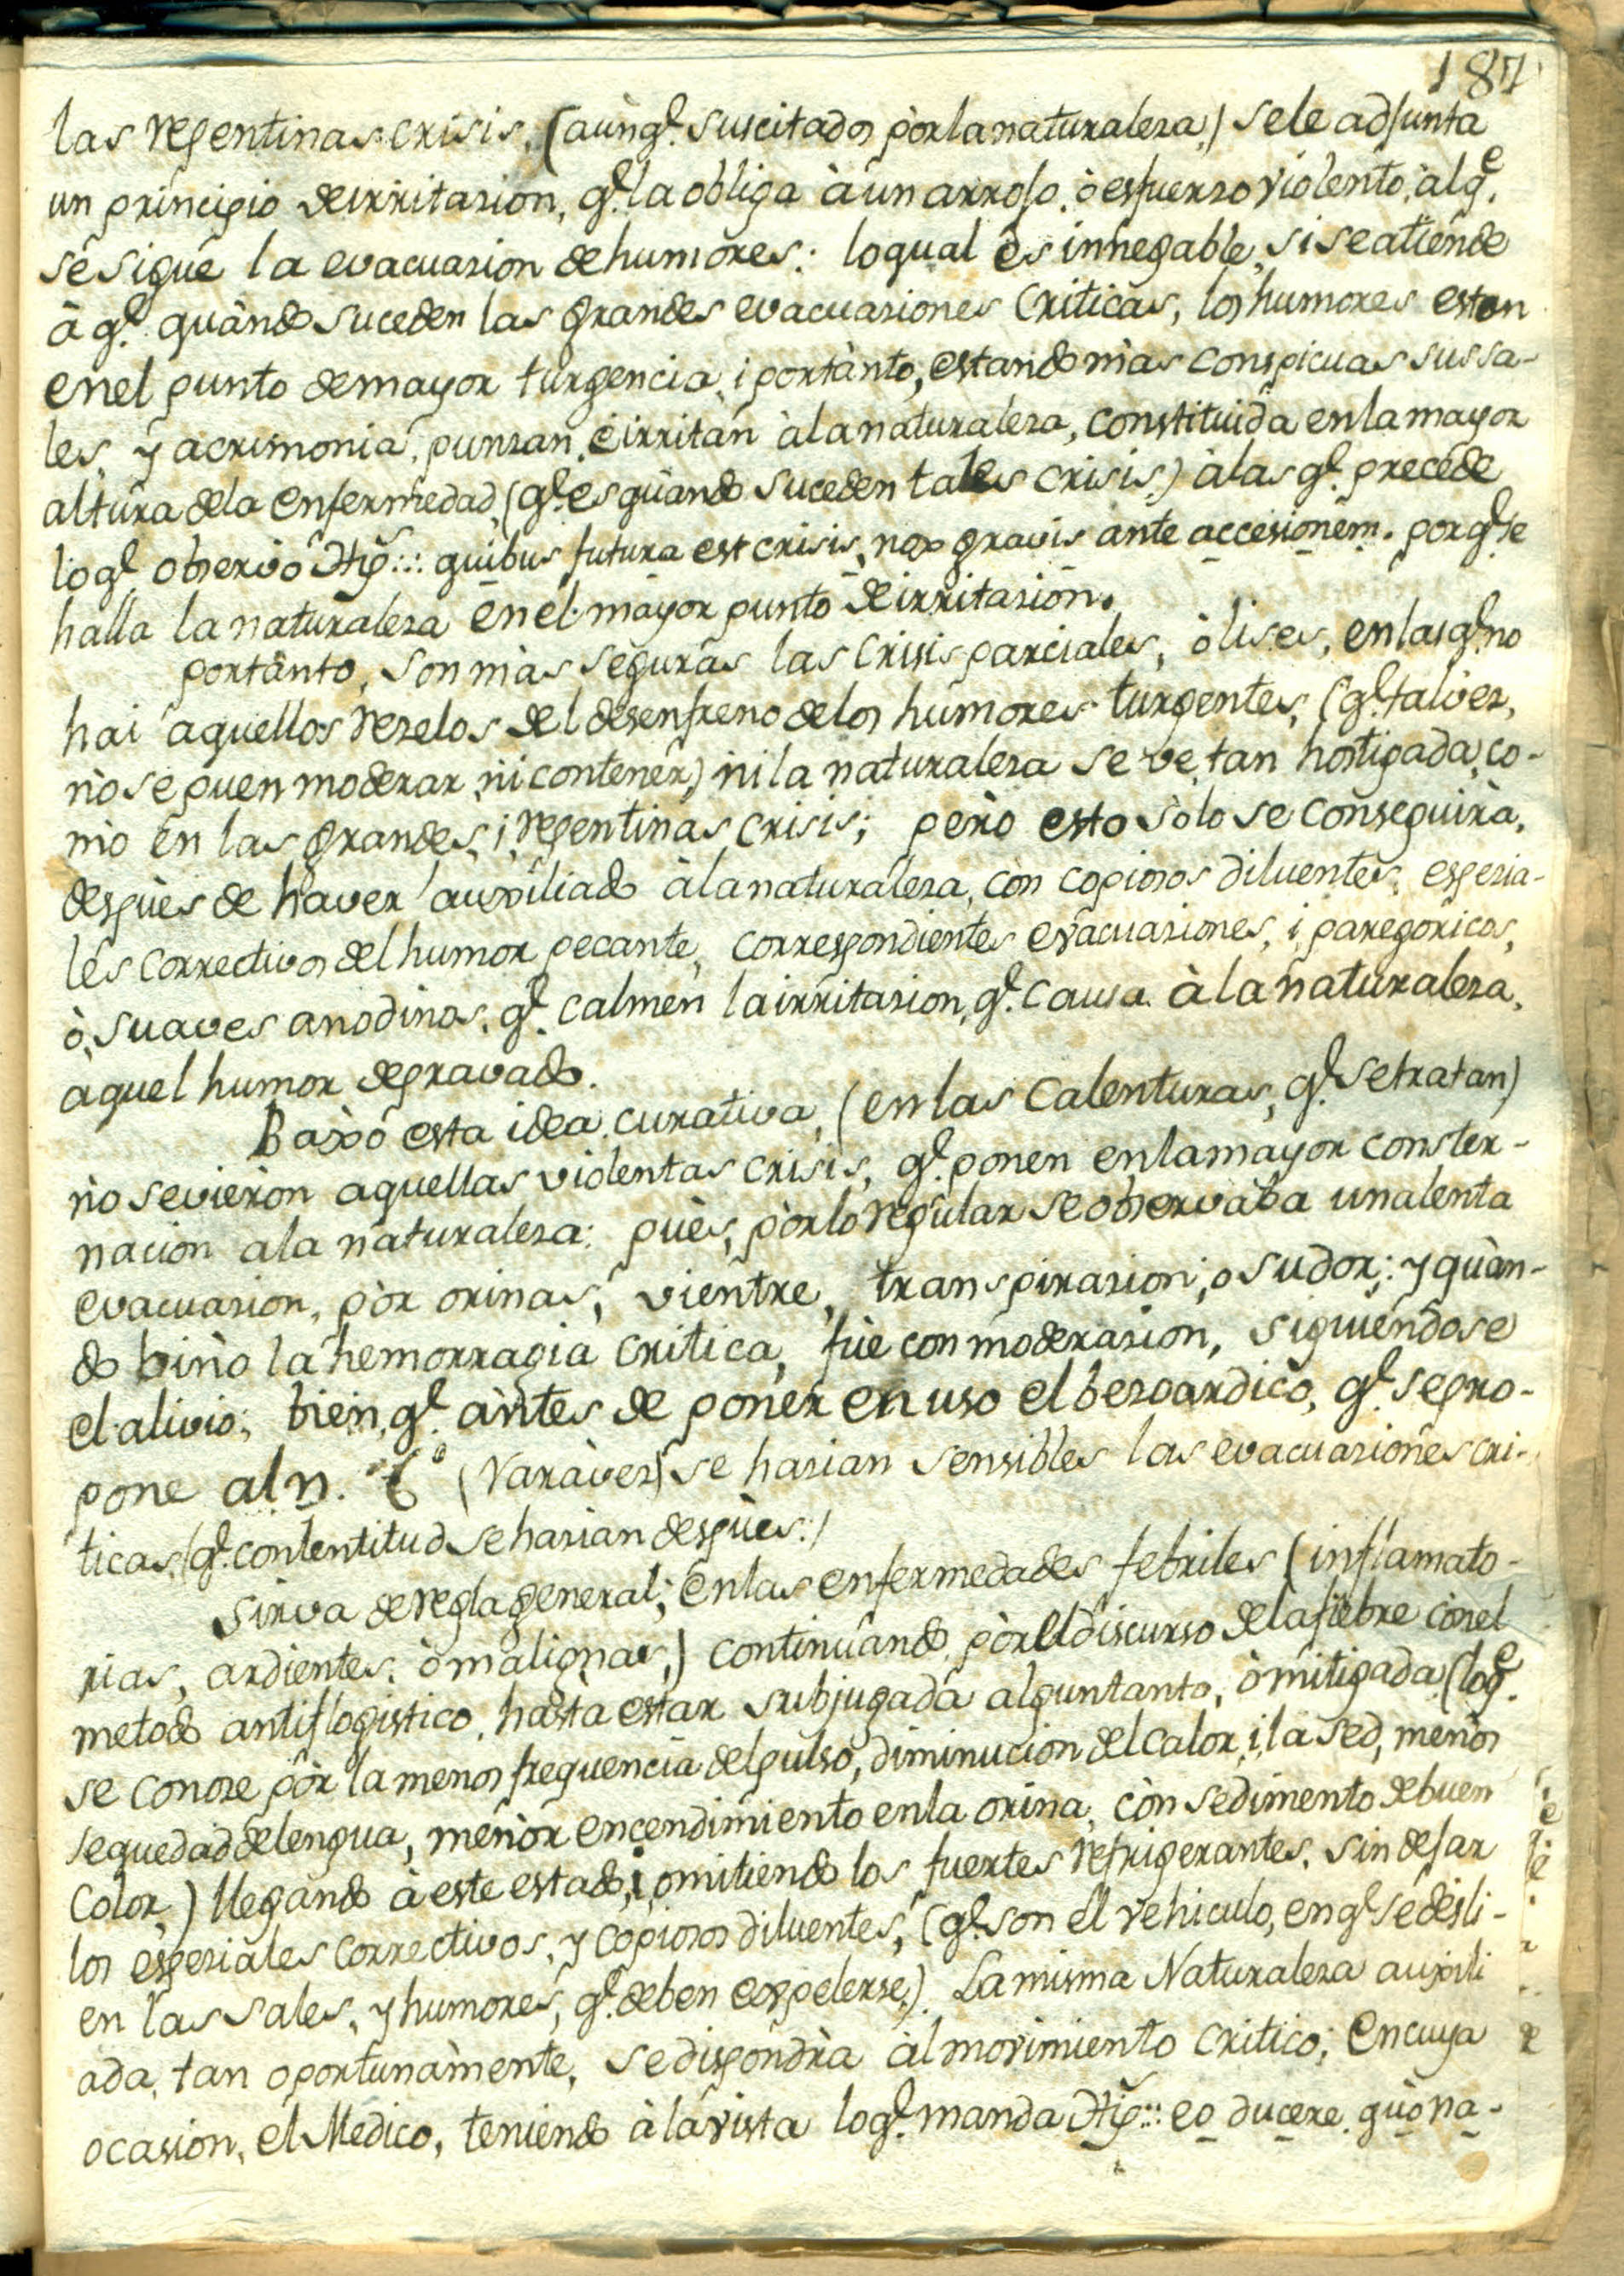 187
las repentinas crisis, (aùnq.e suscitados pòr la naturaleza,) se le adjunta
un principio de irritazion, q.e la obliga à ùn arrojo, ò esfuerzo violento, àl q.e
se sigue la evacuazion de humores: lo qual ès innegable, si se atiende
à q.e quàndo suceden las grandes evacuaziones Criticas, los humores estan
en el punto de mayor turgencia, i por tànto, estando màs conspicuas sus sa-
les, y acrimonia, punzan, è irritàn à la naturaleza, constituida en la mayor
altura de la enfermedad, (q.e es quàndo suceden tales crisis,) à las q.e precede
lo q.e observò Hip::: quibus futura est crisis, nox gravis ante accesionem. porq.e se
halla la naturaleza en el mayor punto de irritazion.
por tànto, son màs seguras las crisis parciales, ò lises, en las q.e no
hai aquellos rezelos del desenfreno de los humores turgentes, (q.e talvez,
nò se pueden moderar, nì contener,) nì la naturaleza se ve tan hostigada, co-
mo en las grandes, i repentinas crisis; pèro esto sòlo se conseguirà,
despùès de haver auxiliado à la naturaleza, còn copiosos diluentes, espezia-
les correctivos del humor pecante, correspondientes evacuaziones, i paregoricos,
ò suaves anodinos, q.e calmen la irritazion, q.e causa à la naturaleza,
àquel humor depravado.
Baxò esta idea curativa, (en las Calenturas, q.e se tratan)
nò se vieròn aquellas violentas crisis, q.e ponen en la mayor conster-
nacion a la naturaleza: pùès, pòr lo regular se observaba una lenta
evacuazion, pòr orinas, vientre, transpirazion, o sudor; y quàn-
do bino la hemorragia critica, fùè con moderazion, siguiendose
el alivio; bien, q.e àntes de poner en uso el bezoardico, q.e se pro-
pone al n. 6º (rara vez) se hazian sensibles las evacuaziones cri-
ticas, (q.e con lentitud se hazian despùès:)
Sirva de regla general; en las enfermedades febriles (inflamato-
rias, ardientes, ò malignas,) continuando, pòr el discurso de la fiebre con el
metodo antiflogistico, hasta estar subjugada algun tanto, ò mitigada (lo q.e
se conoze pòr la menos frequencia del pulso, diminucion del calor, i la sed, menos
sequedad de lengua, menòr encendimiento en la orina, còn sedimento de buen
Color,) llegando à este estado, i omitiendo los fuertes refrigerantes, sin dejar
los espeziales correctivos, y copiosos diluentes, (q.e son el vehiculo, en q.e se desli-
en las sales, y humores, q.e deben expelerse,) La misma Naturaleza auxili
ada, tan oportunamente, se dispondrà àl movimiento critico; en cuya
ocasion, el Medico, teniendo à la vista lo q.e manda Hip::: eo ducere, quò na-